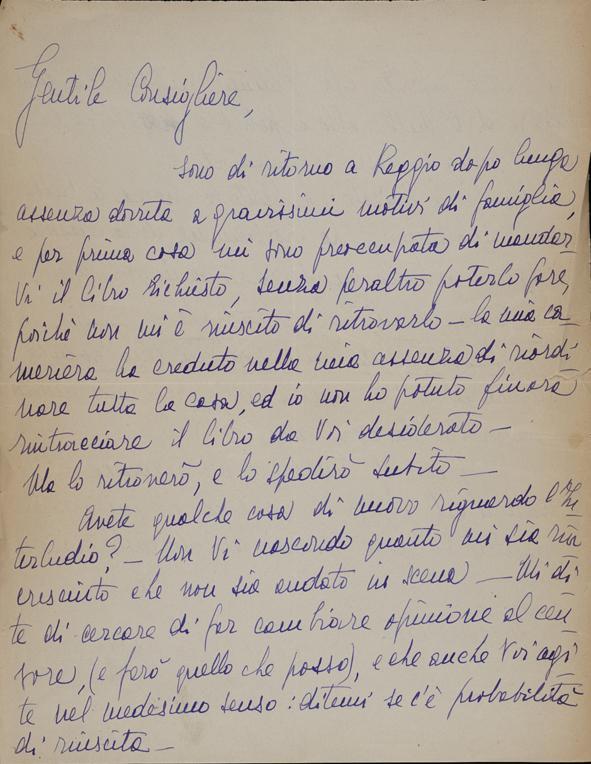 Gentile Consigliere,
sono di ritorno a Reggio dopo lunga
assenza dovuta a gravissimi motivi di famiglia,
e per prima cosa mi sono preoccupata di mandar-
Vi il libro richiesto, senza peraltro poterlo fare,
poichè non mi è riuscito di ritrovarlo - la mia ca-
meriera ha creduto nella mia assenza di riordi
nare tutta la casa, ed io non ho potuto finora
rintracciare il libro da Voi desiderato -
Ma lo ritroverò, e lo spedirò subito -
Avete qualche cosa di nuovo riguardo l'In-
terludio? - Non Vi nascondo quanto mi sia rin
cresciuto che non sia andato in scena - Mi di
te di cercare di far cambiare opinione al cen-
sore, (e farò quello che posso), e che anche Voi agi-
te nel medesimo senso: ditemi se c'è probabilità
di riuscita -